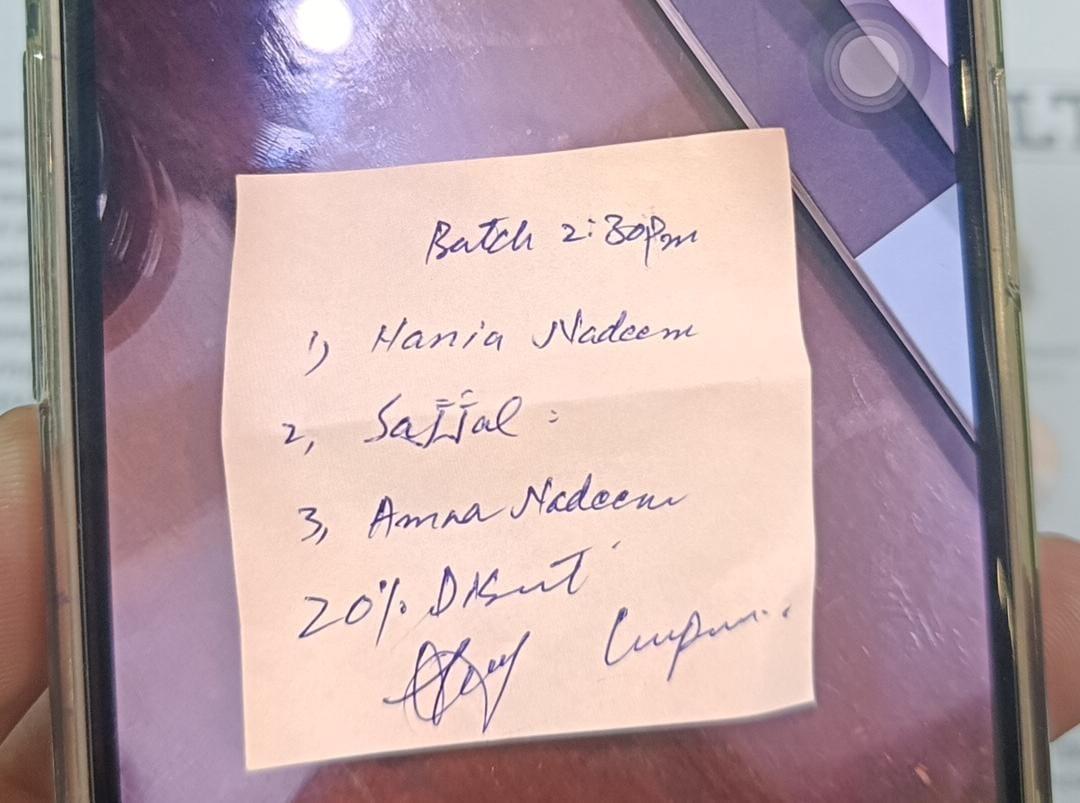 Batch 2:30Pm
1) Hania Nadeem
2, Sajjal :
3, Amna Nadeem
20%
LT